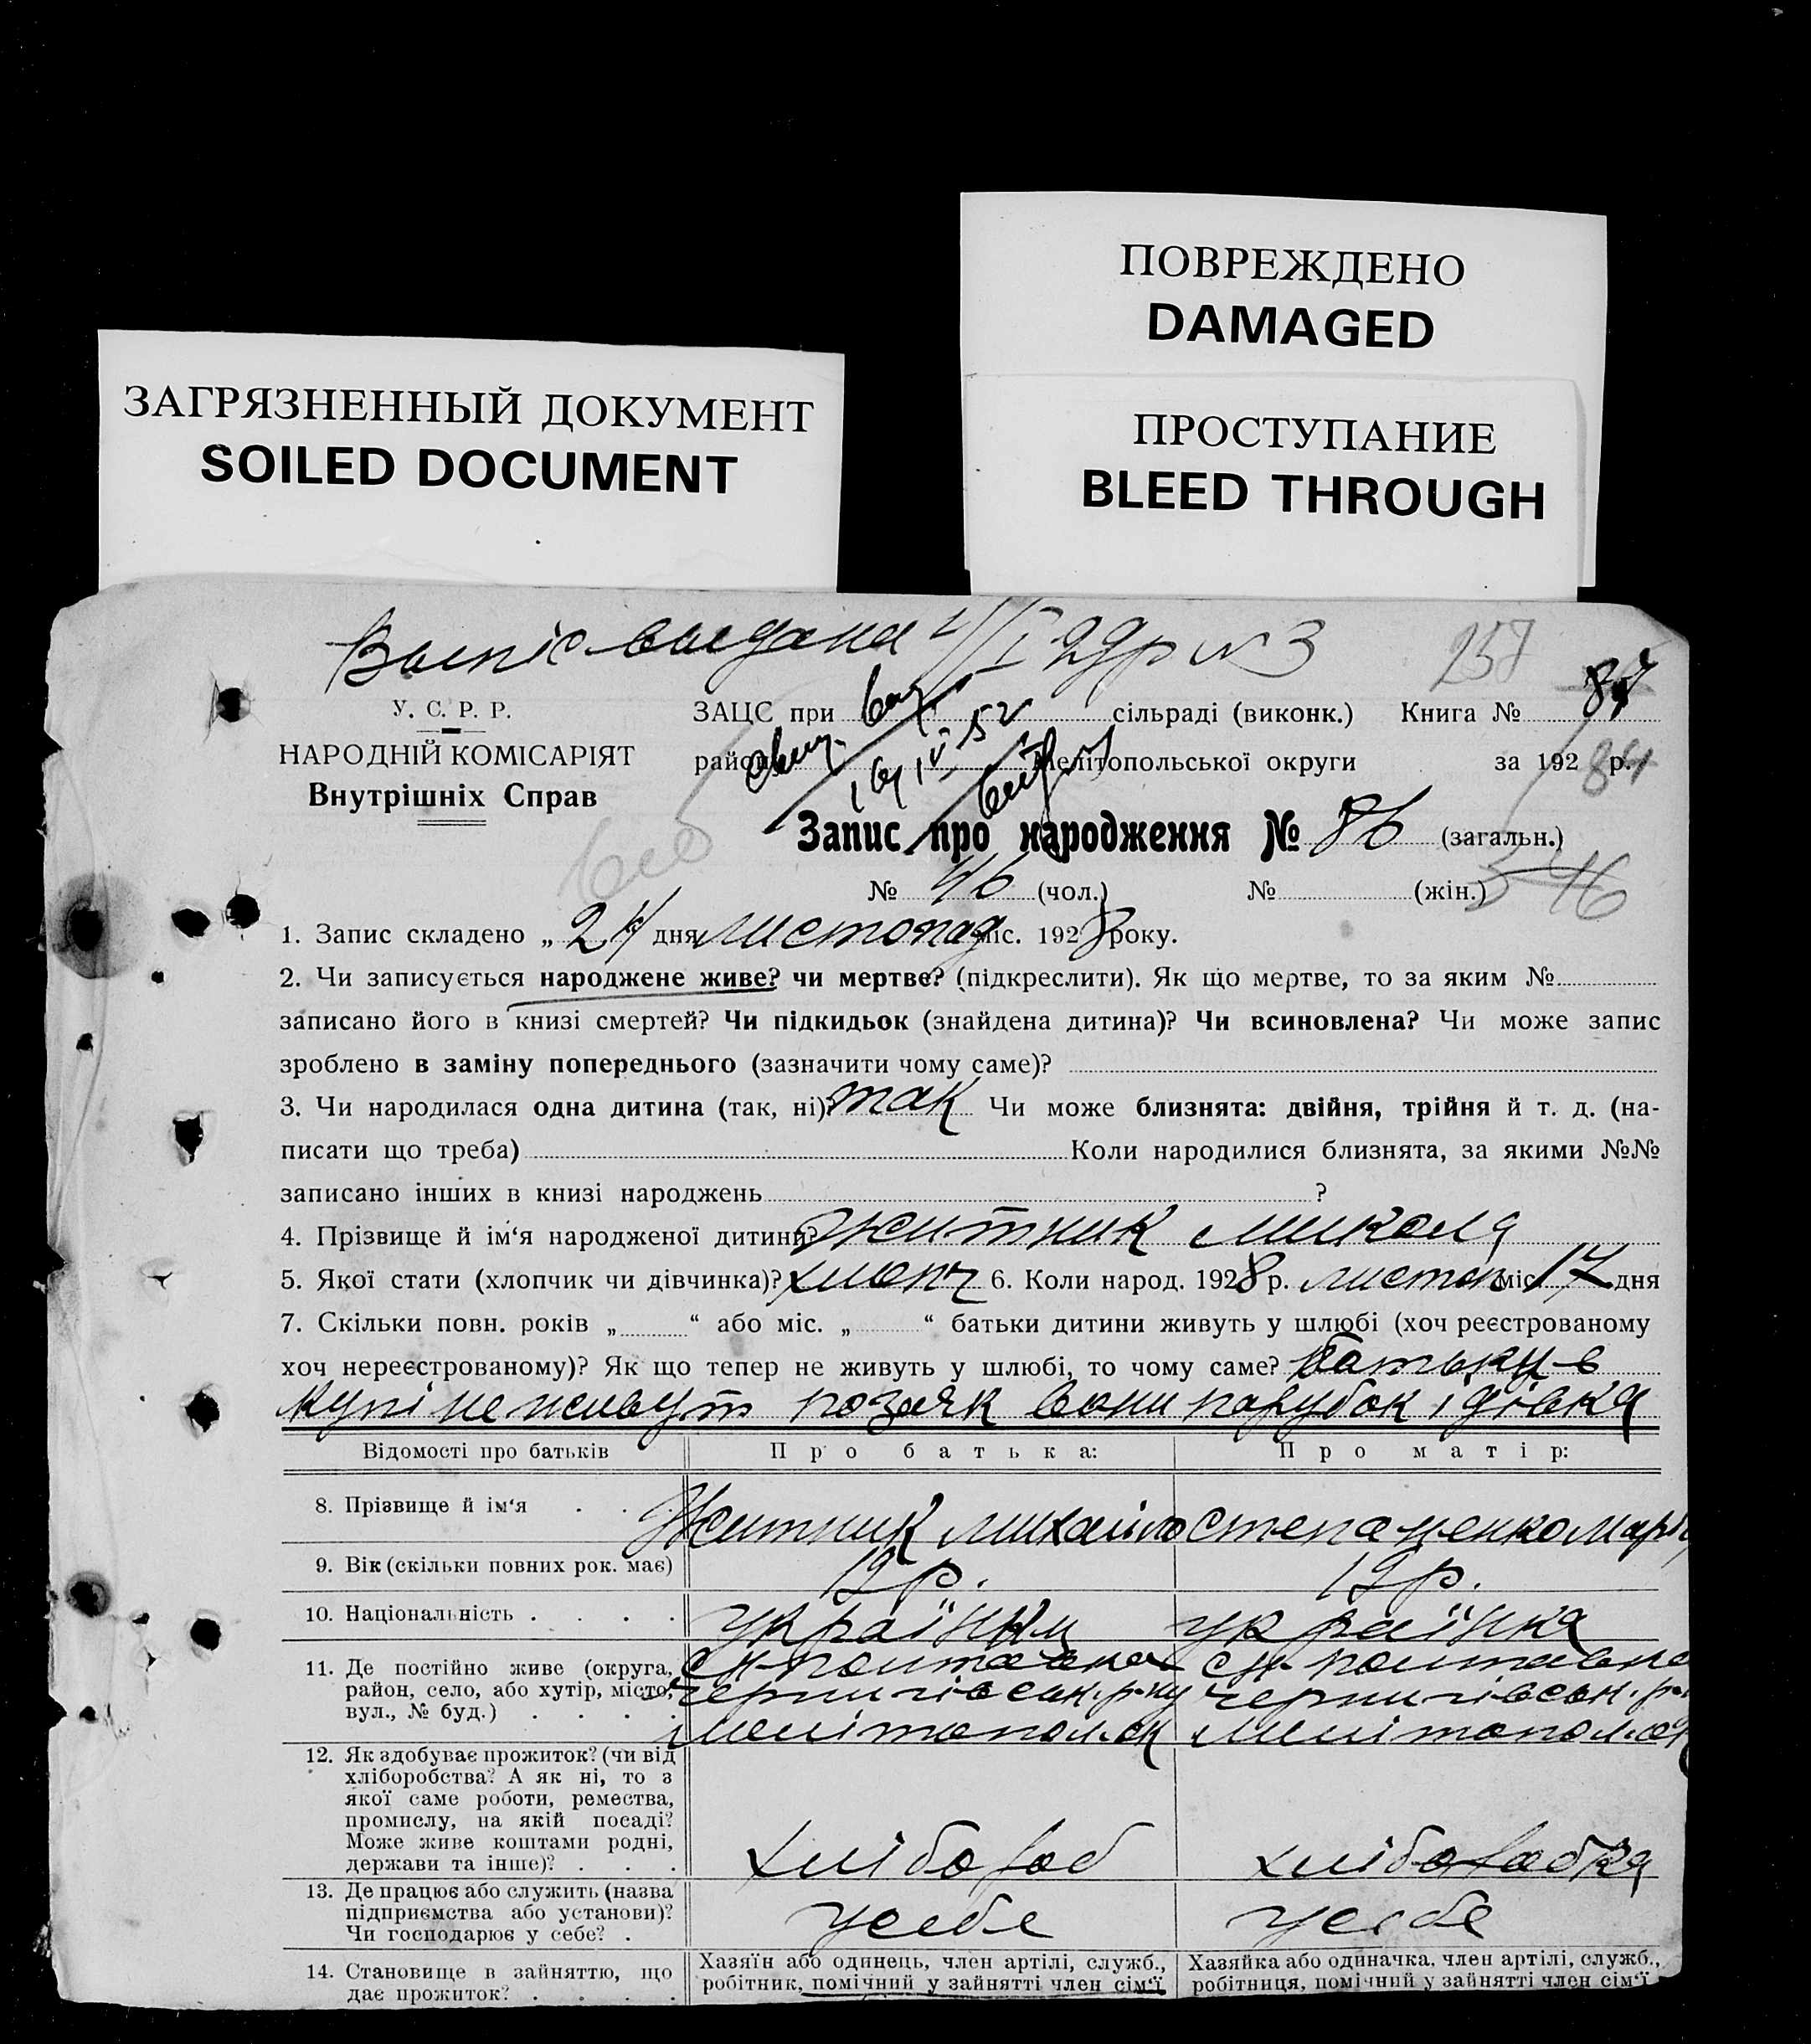 ПОВРЕЖДЕНО
DAMAGED
ЗАГРЯЗНЕННЫЙ ДОКУМЕНТ
SOILED DOCUMENT
ПРОСТУПАНИЕ
BLEED THROUGH
Випис видана 4/I 29р N 3
257
У. С. Р. Р.
ЗАЦС при сільраді (виконк.) Книга № 87
НАРОДНІЙ КОМІСАРІЯТ
район Мелітопольської округи за 192 р. 84
Внутрішніх Справ
Запис про народження № 86 (загальн.)
№ 46 (чол.) № (жін.)
1. Запис складено „ 24 дня листопад міс. 1928 року.
2. Чи записується народжене живе? чи мертве? (підкреслити). Як що мертве, то за яким №
записано його в книзі смертей? Чи підкидьок (знайдена дитина)? Чи всиновлена? Чи може запис
зроблено в заміну попереднього (зазначити чому саме)?
3. Чи народилася одна дитина (так, ні)? так Чи може близнята: двійня, трійня й т. д. (на-
писати що треба) Коли народилися близнята, за якими №№
записано інших в книзі народжень ?
4. Прізвище й ім‘я народженої дитини? Житник Микола
5. Якої стати (хлопчик чи дівчинка)? хлопч 6. Коли народ. 1928 р. листоп міс. 17 дня
7. Скільки повн. років „ “ або міс. „ “ батьки дитини живуть у шлюбі (хоч реєстрованому
хоч нереєстрованому)? Як що тепер не живуть у шлюбі, то чому саме? батьки в
купі не живут позаяк вони парубок і дівка
Відомості про батьків Про батька: Про матір:
8. Прізвище й ім‘я Житник Михайло Степаненко Марія
9. Вік (скільки повних рок. має) 19 р. 19 р.
10. Національність українец українка
11. Де постійно живе (округа, с. Н-Полтавка с. Н. Полтавка
район, село, або хутір, місто, Чернигівськ. р-ну Чернигівськ. р
вул., № буд.) Мелітопол. ок Мелітопол. ок
12. Як здобуває прожиток? (чи від
хліборобства? А як ні, то з
якої саме роботи, ремества,
промислу, на якій посаді?
Може живе коштами родні,
держави та інше)? хлібороб хліборобка
13. Де працює або служить (назва
підприємства або установи)? у себе у себе
Чи господарює у себе?
14. Становище в зайняттю, що Хазяїн або одинець, член артілі, служб., Хазяйка або одиначка, член артілі, служб.,
дає прожиток? робітник, помічний у зайнятті член сім‘ї робітниця, помічний у зайнятті член сім‘ї